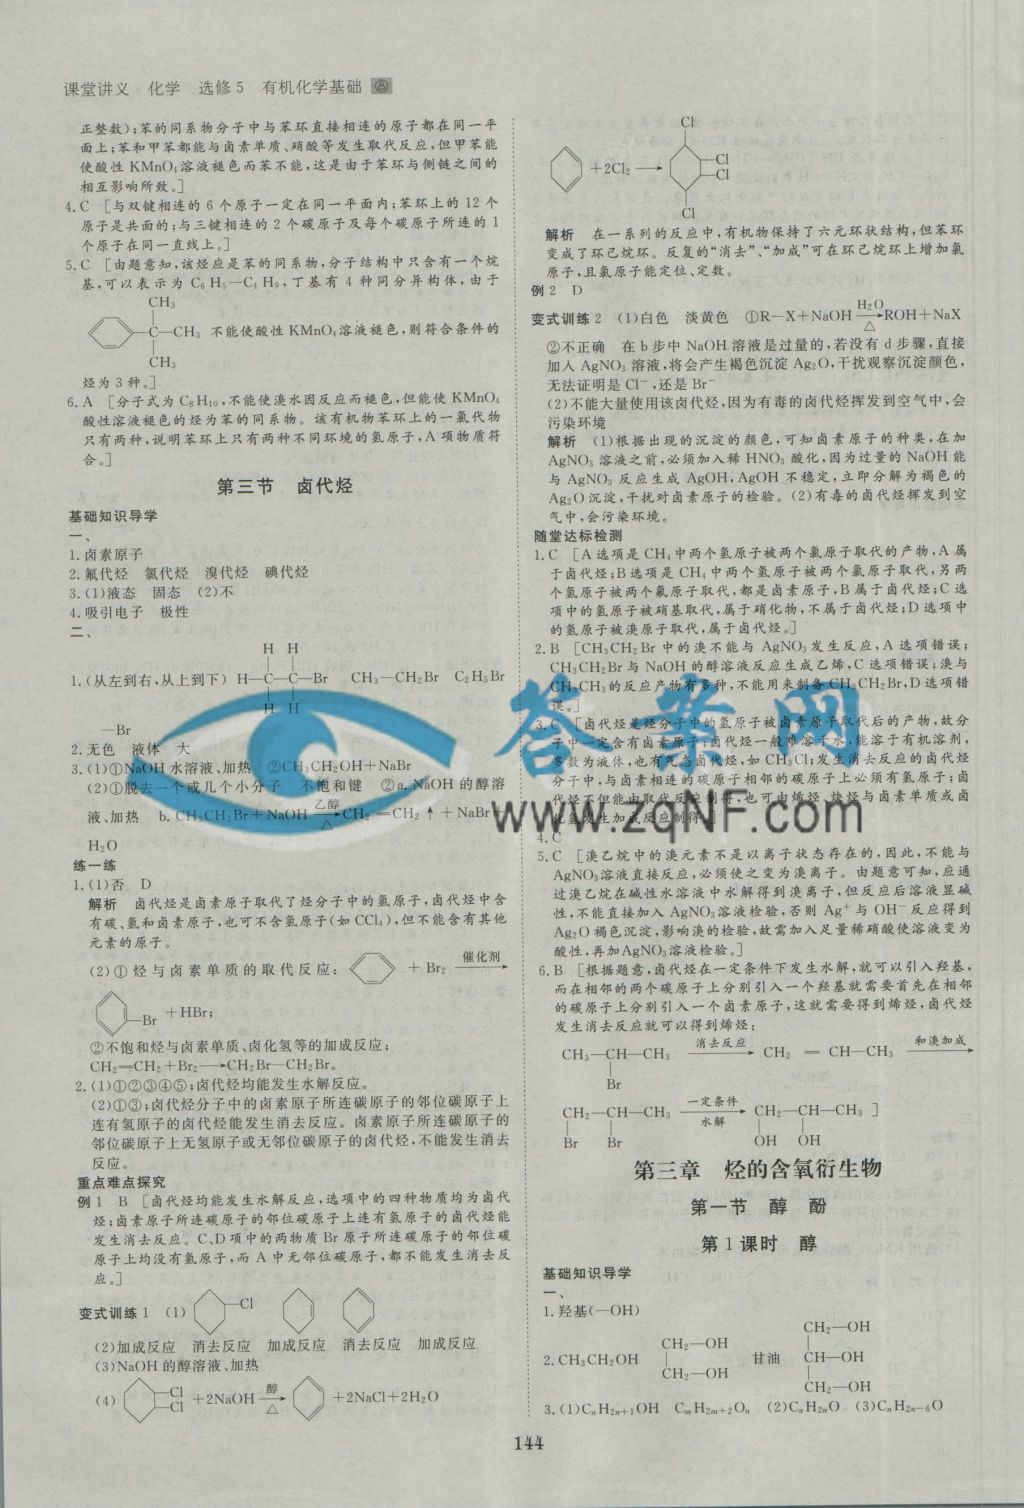 课堂讲义 化学 选修5 有机化学基础
正整数);苯的同系物分子中与苯环直接相连的原子都在同一平
面上;苯和甲苯都能与卤素单质、硝酸等发生取代反应,但甲苯能
使酸性KMnO₄溶液褪色而苯不能,这是由于苯环与侧链之间的
相互影响所致。]
4.C [与双键相连的6个原子一定在同一平面内;苯环上的12个
原子是共面的;与三键相连的2个碳原子及每个碳原子所连的1
个原子在同一直线上。]
5.C [由题意知,该烃应是苯的同系物,分子结构中只含有一个烷
基,可以表示为C₆H₅—C₄H₉,丁基有4种同分异构体,由于
CH₃
C—CH₃ 不能使酸性KMnO₄溶液褪色,则符合条件的
CH₃
烃为3种。]
6.A [分子式为C₈H₁₀,不能使溴水因反应而褪色,但能使KMnO₄
酸性溶液褪色的烃为苯的同系物。该有机物苯环上的一氯代物
只有两种,说明苯环上只有两种不同环境的氢原子,A项物质符
合。]
第三节 卤代烃
基础知识导学
一、
1.卤素原子
2.氟代烃 氯代烃 溴代烃 碘代烃
3.(1)液态 固态 (2)不
4.吸引电子 极性
二、
H H
1.(从左到右,从上到下) H—C—C—Br CH₃—CH₂Br C₂H₅Br
H H
—Br
2.无色 液体 大
3.(1)①NaOH水溶液、加热 ②CH₃CH₂OH+NaBr
(2)①脱去一个或几个小分子 不饱和键 ②a.NaOH的醇溶
液、加热 b.CH₃CH₂Br+NaOH 乙醇 △ → CH₂═CH₂↑+NaBr+
H₂O
练一练
1.(1)否 D
解析 卤代烃是卤素原子取代了烃分子中的氢原子,卤代烃中含
有碳、氢和卤素原子,也可不含氢原子(如CCl₄),但不能含有其他
元素的原子。
(2)①烃与卤素单质的取代反应: +Br₂ 催化剂 →
—Br +HBr;
②不饱和烃与卤素单质、卤化氢等的加成反应:
CH₂═CH₂+Br₂→CH₂Br—CH₂Br。
2.(1)①②③④⑤;卤代烃均能发生水解反应。
(2)①③;卤代烃分子中的卤素原子所连碳原子的邻位碳原子上
连有氢原子的卤代烃能发生消去反应。卤素原子所连碳原子的
邻位碳原子上无氢原子或无邻位碳原子的卤代烃,不能发生消去
反应。
重点难点探究
例1 B [卤代烃均能发生水解反应,选项中的四种物质均为卤代
烃;卤素原子所连碳原子的邻位碳原子上连有氢原子的卤代烃能
发生消去反应。C、D项中的两物质Br原子所连碳原子的邻位碳
原子上均没有氢原子,而A中无邻位碳原子,都不能发生消去反
应。]
变式训练1 (1) —Cl
(2)加成反应 消去反应 加成反应 消去反应 加成反应
(3)NaOH的醇溶液、加热
(4) Cl Cl +2NaOH 醇 △ → +2NaCl+2H₂O
Cl
+2Cl₂→ Cl
Cl
Cl
解析 在一系列的反应中,有机物保持了六元环状结构,但苯环
变成了环己烷环。反复的“消去”、“加成”可在环己烷环上增加氯
原子,且氯原子能定位、定数。
例2 D
变式训练2 (1)白色 淡黄色 ①R—X+NaOH H₂O △ → ROH+NaX
②不正确 在b步中NaOH溶液是过量的,若没有d步骤,直接
加人AgNO₃溶液,将会产生褐色沉淀Ag₂O,干扰观察沉淀颜色,
无法证明是Cl⁻,还是Br⁻
(2)不能大量使用该卤代烃,因为有毒的卤代烃挥发到空气中,会
污染环境
解析 (1)根据出现的沉淀的颜色,可知卤素原子的种类,在加
AgNO₃溶液之前,必须加入稀HNO₃酸化,因为过量的NaOH能
与AgNO₃反应生成AgOH,AgOH不稳定,立即分解为褐色的
Ag₂O沉淀,干扰对卤素原子的检验。(2)有毒的卤代烃挥发到空
气中,会污染环境。
随堂达标检测
1.C [A选项是CH₄中两个氢原子被两个氯原子取代的产物,A属
于卤代烃;B选项是CH₄中两个氢原子被两个氯原子取代,另两
个氢原子被两个氟原子取代,都是卤素原子,B属于卤代烃;C选
项中的氢原子被硝基取代,属于硝化物,不属于卤代烃;D选项中
的氢原子被溴原子取代,属于卤代烃。]
2.B [CH₃CH₂Br中的溴不能与AgNO₃发生反应,A选项错误;
CH₃CH₂Br与NaOH的醇溶液反应生成乙烯,C选项错误;溴与
CH₃CH₃的反应产物有多种,不能用来制备CH₃CH₂Br,D选项错
误。]
3.C [卤代烃是烃分子中的氢原子被卤素原子取代后的产物,故分
子中一定含有卤素原子;卤代烃一般难溶于水,能溶于有机溶剂,
多数为液体,也有气态卤代烃,如CH₃Cl;发生消去反应的卤代烃
分子中,与卤素相连的碳原子相邻的碳原子上必须有氢原子;卤
代烃不但能由取代反应制得,也可由烯烃、炔烃与卤素单质或卤
化氢发生加成反应制得。]
4.C
5.C [溴乙烷中的溴元素不是以离子状态存在的,因此,不能与
AgNO₃溶液直接反应,必须使之变为溴离子。由题意可知,应通
过溴乙烷在碱性水溶液中水解得到溴离子,但反应后溶液显碱
性,不能直接加入AgNO₃溶液检验,否则Ag⁺与OH⁻反应得到
Ag₂O褐色沉淀,影响溴的检验,故需加入足量稀硝酸使溶液变为
酸性,再加AgNO₃溶液检验。]
6.B [根据题意,卤代烃在一定条件下发生水解,就可以引入羟基,
而在相邻的两个碳原子上分别引入一个羟基就需要首先在相邻
的碳原子上分别引入一个卤素原子,这就需要得到烯烃,卤代烃
发生消去反应就可以得到烯烃:
CH₃—CH—CH₃ 消去反应 → CH₂═CH—CH₃ 和溴加成 →
Br
CH₂—CH—CH₃ 一定条件 水解 → CH₂—CH—CH₃ ]
Br Br OH OH
第三章 烃的含氧衍生物
第一节 醇 酚
第1课时 醇
基础知识导学
一、
1.羟基(—OH)
CH₂—OH
CH₂—OH
2.CH₃CH₂OH 甘油 CH—OH
CH₂—OH
CH₂—OH
3.(1)CₙH₂ₙ₊₁OH CₘH₂ₘ₊₂Oₙ (2)CₙH₂ₙO (3)CₙH₂ₙ₋₆O
144
答案网
www.zqNF.com